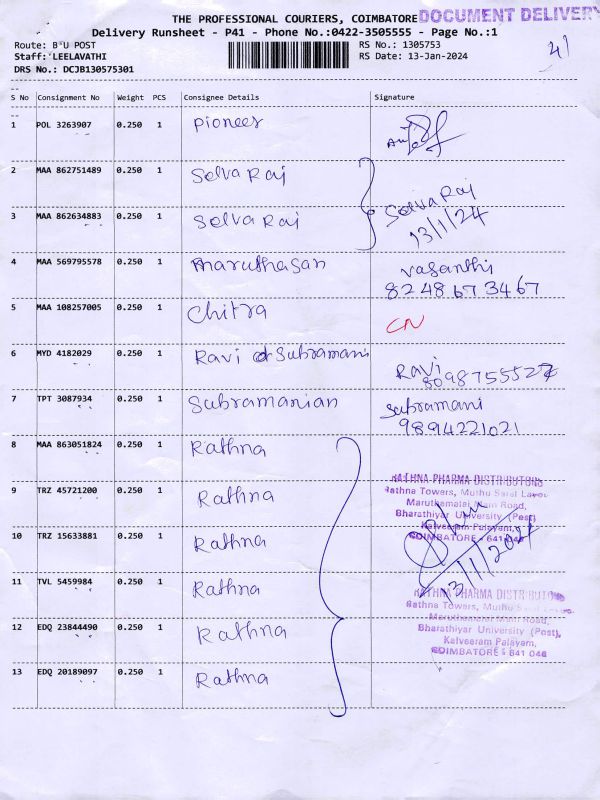 THE PROFESSIONAL COURIERS, COIMBATORE DOCUMENT DELIVERY
Delivery Runsheet - P41 - Phone No.:0422-3505555 - Page No.:1
Route: B U POST RS No.: 1305753
Staff: LEELAVATHI RS Date: 13-Jan-2024
DRS No.: DCJB130575301
S No Consignment No Weight PCS Consignee Details Signature
1 POL 3263907 0.250 1 Pioneer
2 MAA 862751489 0.250 1 Selva Raj
3 MAA 862634883 0.250 1 Selva Raj Selva Raj
13/1/24
4 MAA 569795578 0.250 1 Maruthasan Vasanthi
8248673467
5 MAA 108257005 0.250 1 Chitra CN
6 MYD 4182029 0.250 1 Ravi Subramani Ravi
7 TPT 3087934 0.250 1 Subramanian Subramani
9894221021
8 MAA 863051824 0.250 1 Rathna
RATHNA PHARMA DISTRIBUTORS
9 TRZ 45721200 0.250 1 Rathna Rathna Towers, Muthu
Maruthamalai Main Road,
Bharathiyar University (Post)
10 TRZ 15633881 0.250 1 Rathna Kalveeram Palayam,
COIMBATORE - 641 046
13/1/2024
11 TVL 5459984 0.250 1 Rathna RATHNA PHARMA DISTRIBUTORS
Rathna Towers, Muthu
Maruthamalai Main Road,
12 EDQ 23844490 0.250 1 Rathna Bharathiyar University (Post),
Kalveeram Palayam,
COIMBATORE - 641 046
13 EDQ 20189097 0.250 1 Rathna